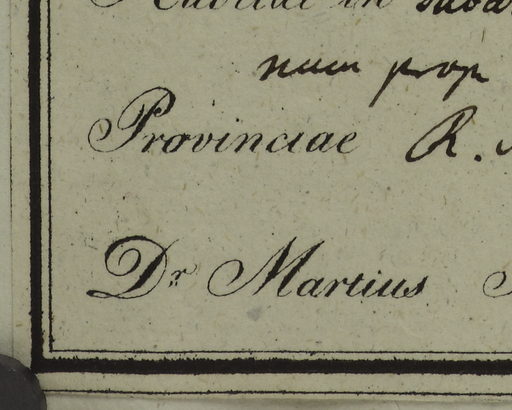 Habitat in
num prop
Provinciae R.
Dr Martius